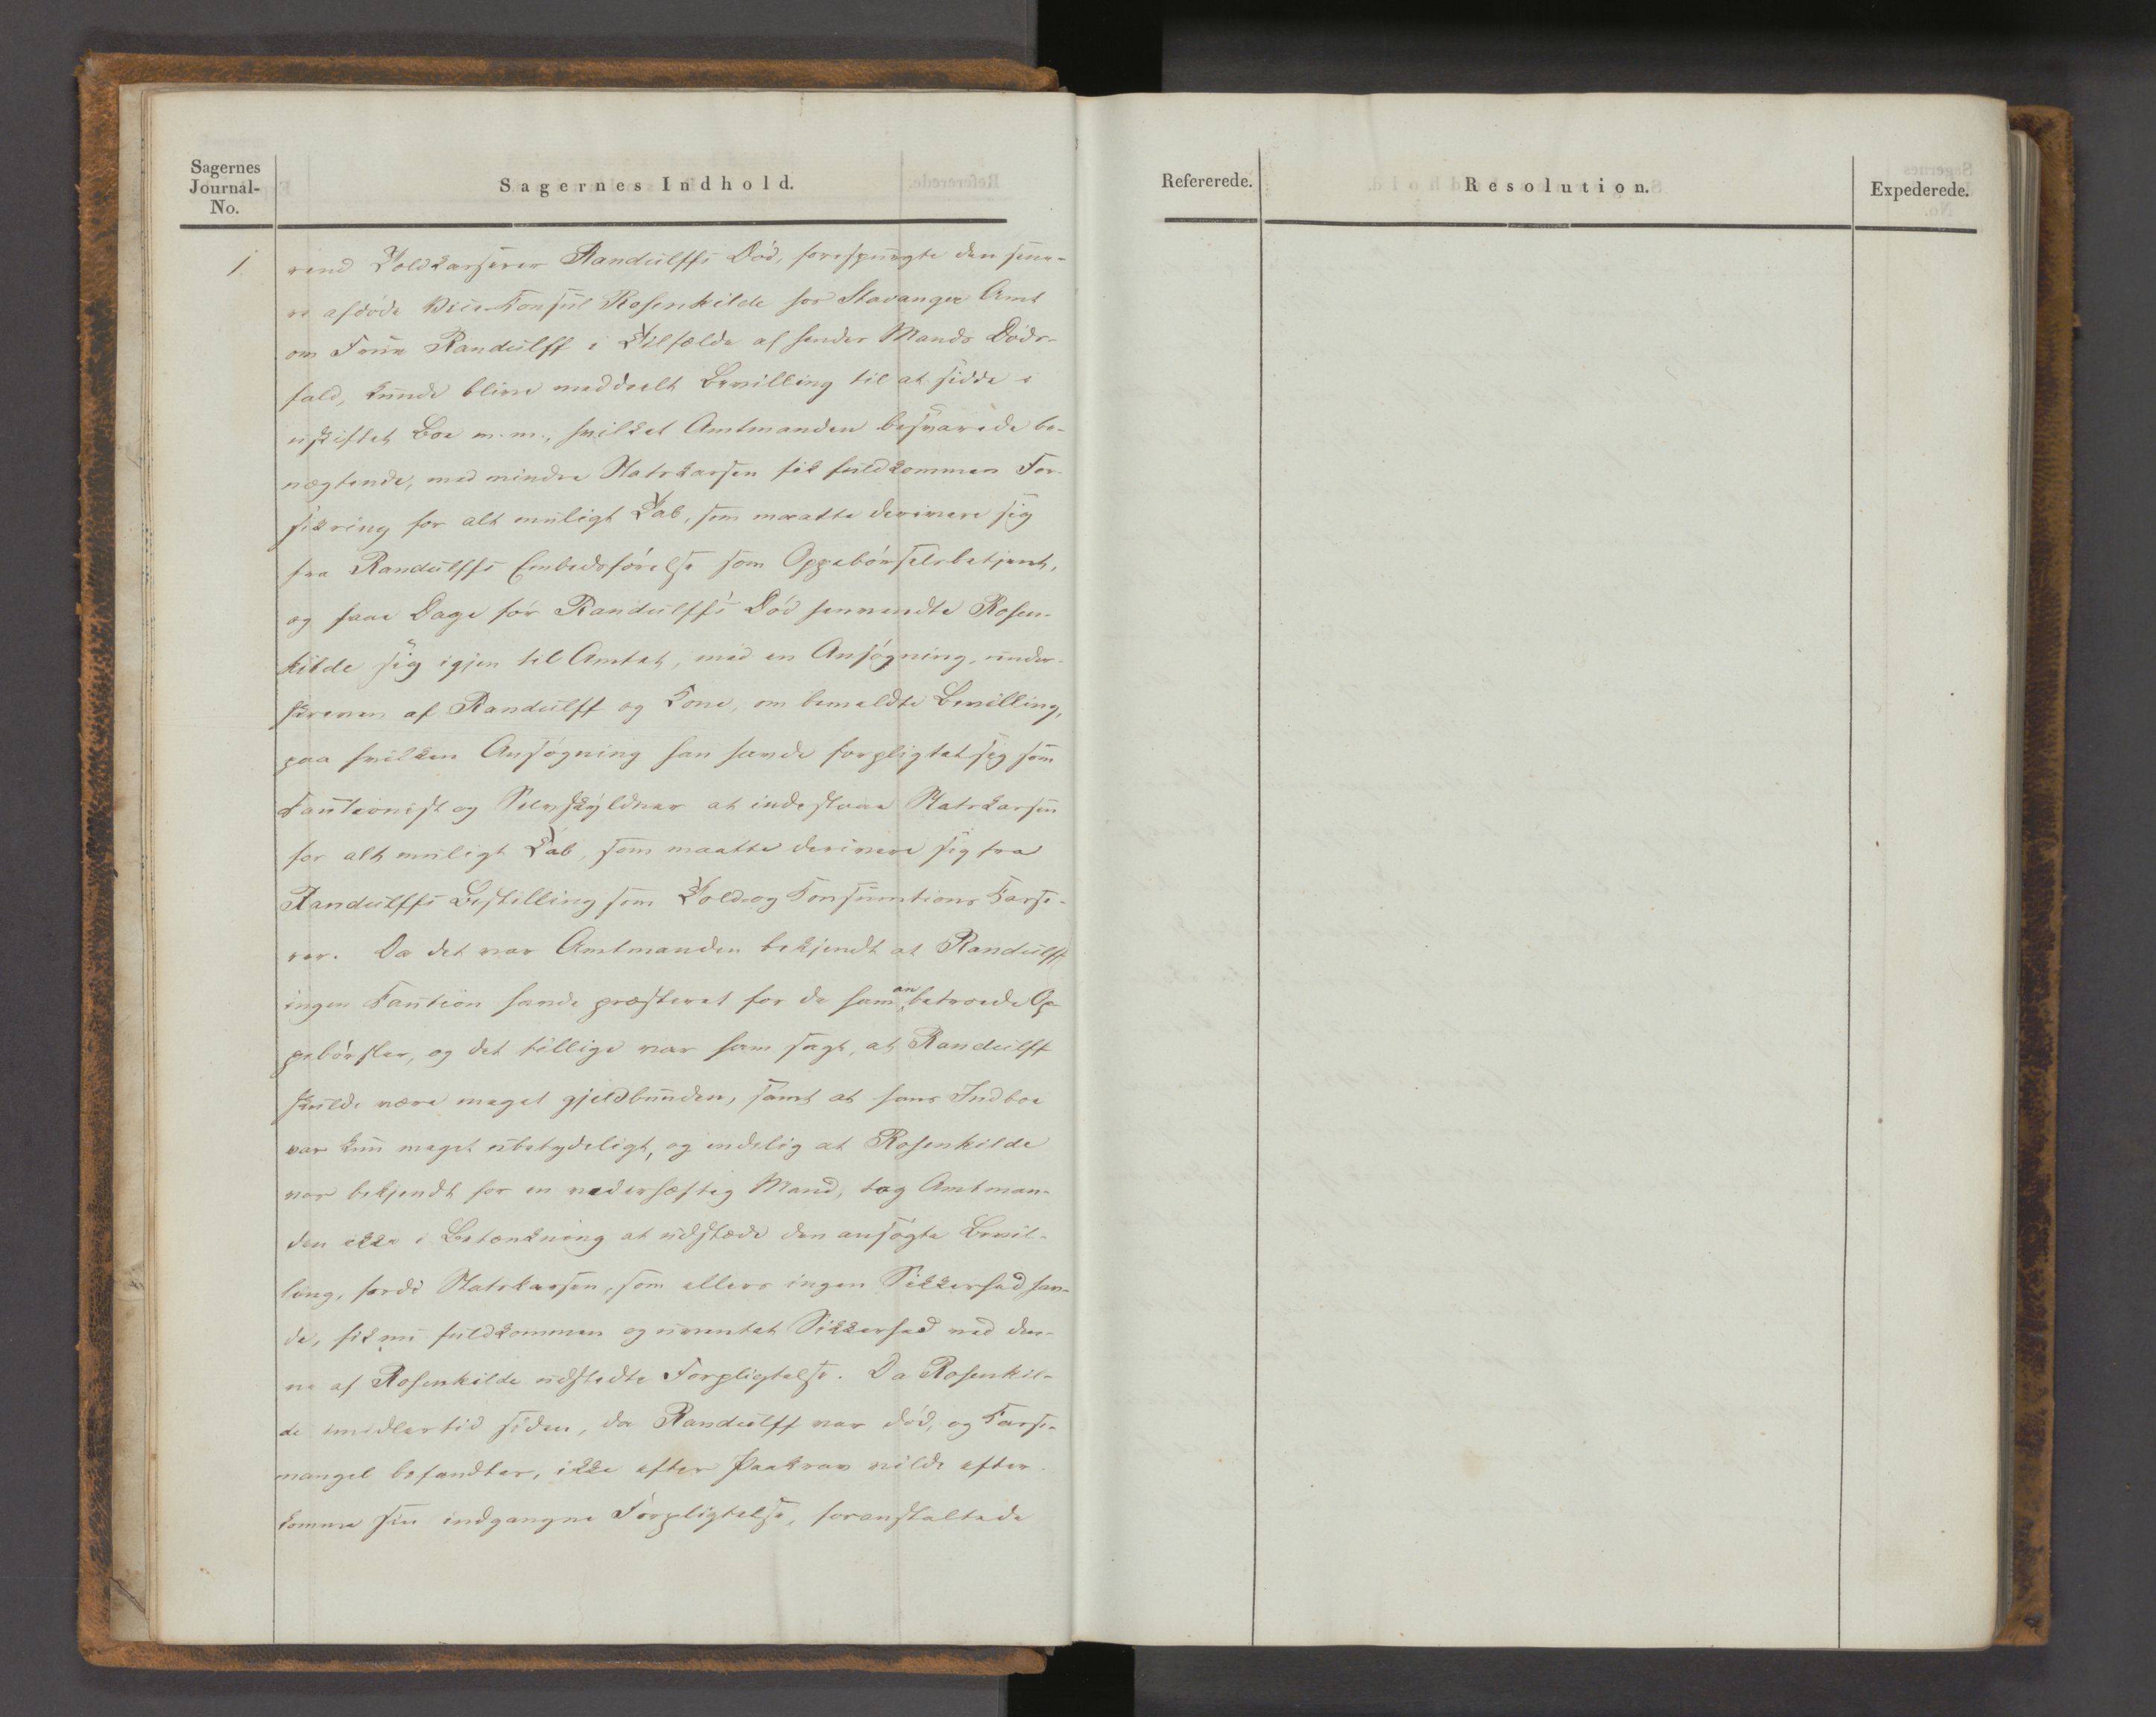 Sagernes
Journal-
No.
Sagernes Indhold.
1.
rend Toldkasserer Randulffs Död, forespurgte den sene-
re afdöde Vice-Konsul Rosenkilde hos Stavanger Amt
om Frue Randulff i Tilfælde af hendes Mands Döds-
fald, kunde blive meddeelt Bevilling til at sidde i
uskiftet Boe m. m., hvilket Amtmanden besvarede be-
nægtende, med mindre Statskassen fik fuldkommen For-
sikring for alt muligt Tab, som maatte derivere sig
fra Randulffs Embedsförelse som Oppebörselsbetjent,
og faae Dage för Randulffs Död henvendte Rosen-
kilde sig igjen til Amtet, med en Ansögning, under-
skreven af Randulff og Kone, om bemeldte Bevilling,
paa hvilken Ansögning han havde forpligtet sig som
Kautionist og Selvskyldner at indestaae Statskassen
for alt muligt Tab, som maatte derivere sig fra
Randulffs Bestilling som Told og Konsumtions Kasse-
rer. Da det var Amtmanden bekjendt at Randulff
ingen Kaution havde præsteret for de ham anbetroede Op-
pebörsler, og det tillige var ham sagt, at Randulff
skulde være meget gjeldbunden, samt at hans Indboe
var kun meget ubetydeligt, og endelig at Rosenkilde
var bekjendt for en vederhæftig Mand, tog Amtman-
den ikke i Betænkning at udstæde den ansögte Bevil-
ling, fordi Statskassen, som ellers ingen Sikkerhed hav-
de, fik nu fuldkommen og uventet Sikkerhed ved den-
ne af Rosenkilde udstedte Forpligtelse. Da Rosenkil-
de imidlertid siden, da Randulff var död, og Kasse-
mangel befandtes, ikke efter Paakrav vilde efter-
komme sin indgangne Forpligtelse, foranstaltede
Refererede.
Resolution.
Expederede.